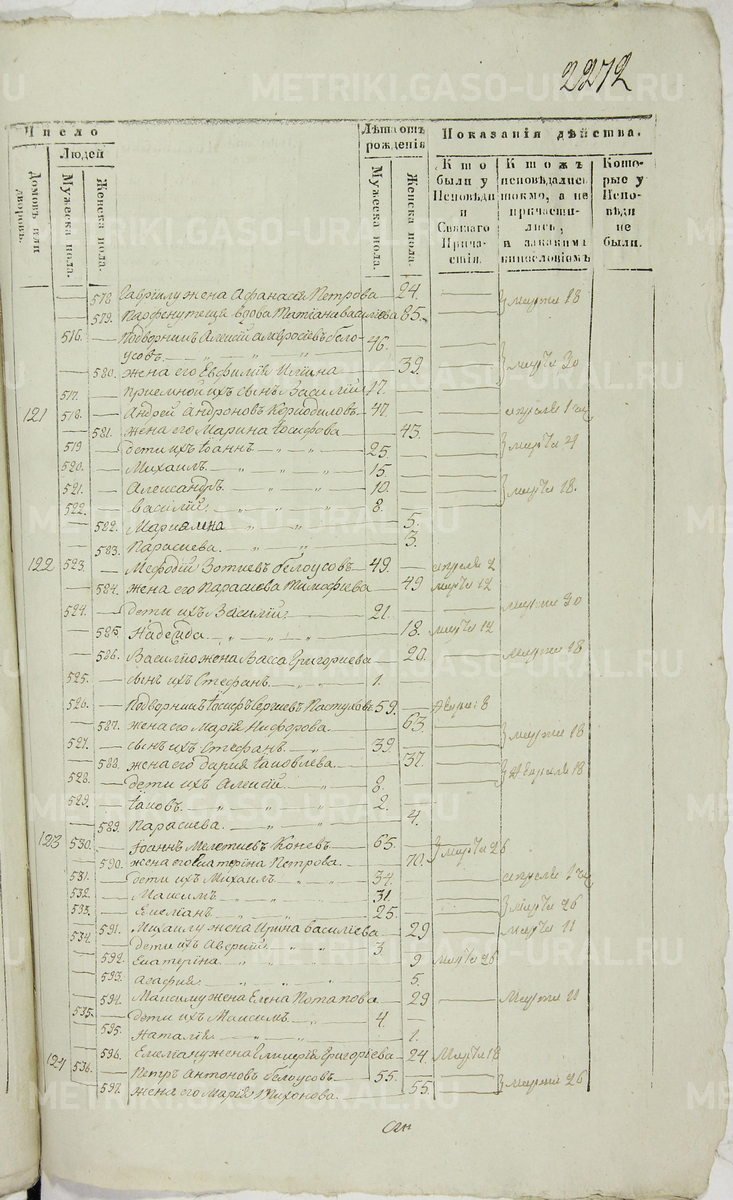 2272
METRIKI.GASO-URAL.RU
Число
Людей
Домовъ или дворовъ.
Мужеска пола.
Женска пола.
Лѣта отъ рожденія
Мужеска пола.
Женска пола.
Показанія дѣйства.
Кто были у Исповѣди и Святаго Причастія.
Кто жъ исповѣдались токмо, а не причастились, и за какимъ винословіемъ
Которые у Исповѣди не были.
578. Гавриилу жена Афанасія Петрова 24. марта 18
579. вдова Татіана василіева 85.
516. Подворникъ Алексій бело-
усовъ 46.
580. жена его Евфимія 39. марта 30
517. Приемной ихъ сынъ Василій 17.
121 518. Андрей Андроновъ 47. апреля 1
581. жена его Марина Іосифова 43.
519 дети ихъ Іоаннъ 25. марта
520. Михаилъ 15.
521. Александръ 10. марта 18.
522. василій 8.
582. Мариамна 5.
583. Парасиева 3.
122 523. Мефодій Зотиевъ белоусовъ 49. апреля 2
584. жена его Парасиева Тимофиева 49 марта 12
524. дети ихъ Василій 21. марта 30
585. Надежда 18. марта 12
586. Василію жена Васса Григориева 20. марта 18
525. сынъ ихъ Стефанъ 1.
526. Подворникъ Іосифъ Сергиевъ Пастуховъ 59. 8
587. жена его Марія Никифорова 63. марта 18
527. сынъ ихъ Стефанъ 39.
588. жена его дария Іаковлева 37. Апреля 18
528. дети ихъ Алексій 8.
529. Іаковъ 2.
589. Парасиева 4.
123 530. Іоаннъ Мелетиевъ Коневъ 65. марта 26
590. жена его Екатерина Петрова 70.
531. дети ихъ Михаилъ 34. апреля 1
532. Максимъ 31.
533. Емелианъ 25. марта 26
591. Михаилу жена Ирина василиева 29 марта 11
534. дети ихъ Аверкий 3.
592. Екатерина 9 марта 26
593. Агафия 5.
594. Максиму жена Елена Потапова 29 Марта 11
535. дети ихъ Максимъ 4.
595. Наталия 1.
596. Емелиану жена Григориева 24 Марта 18
124 536. Петръ Антоновъ белоусовъ 55.
597. жена его Марія Тихонова 55. марта 26